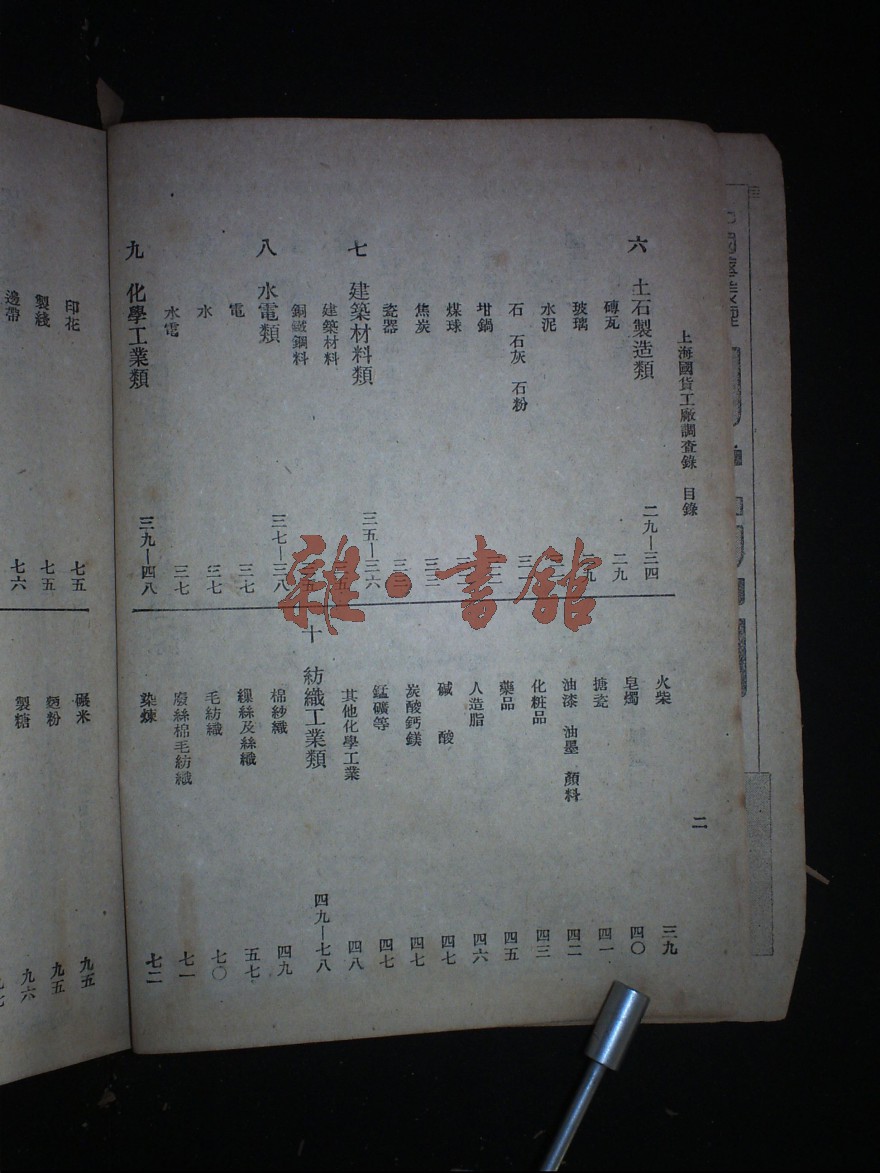 上海國貨工廠調查錄 目錄
二
六 土石製造類 二九—三四
磚瓦 二九
玻璃
水泥
石 石灰 石粉
坩鍋
煤球
焦炭 三三
瓷器 三三
七 建築材料類 三五—三六
建築材料
銅鐵鋼料
八 水電類 三七—三八
電 三七
水 三七
水電 三七
九 化學工業類 三九—四八
火柴 三九
皂燭 四〇
搪瓷 四一
油漆 油墨 顏料 四二
化粧品 四三
藥品 四五
人造脂 四六
碱 酸 四七
炭酸鈣鎂 四七
錳礦等 四七
其他化學工業 四八
十 紡織工業類 四九—七八
棉紗織 四九
繅絲及絲織 五七
毛紡織 七〇
廢絲棉毛紡織 七一
染煉 七二
印花 七五
製綫 七五
邊帶 七六
碾米 九五
麵粉 九五
製糖 九六
雜·書館